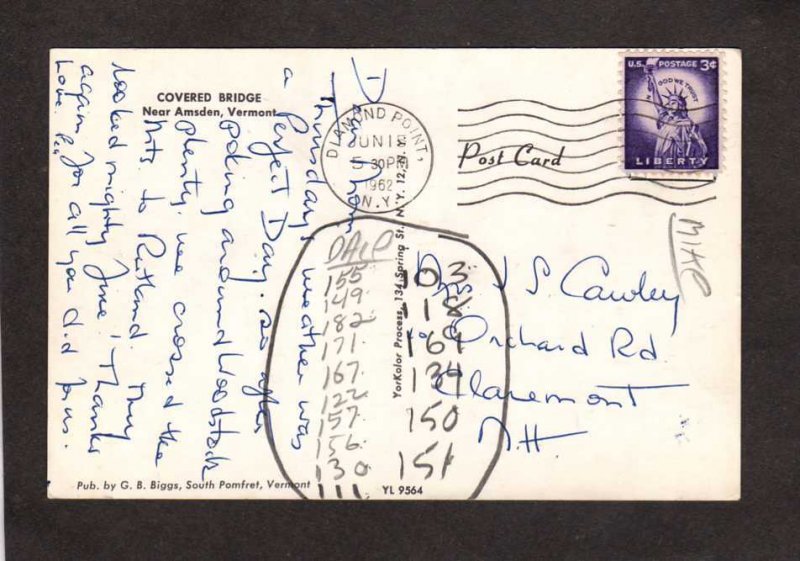 COVERED BRIDGE
Near Amsden, Vermont
Dear Mom
Thursday's weather was
a Perfect Day. so after
poking around Woodstock
plenty. we crossed the
Mts to Rutland. They
looked mighty fine! Thanks
again for all you did for us.
Love
Pub. by G. B. Biggs, South Pomfret, Vermont
YL 9564
YorKolor Process, 134 Spring St., N.Y. 12, N.Y.
DIAMOND POINT,
JUN 18
5 30PM
1962
N.Y.
Post Card
U.S. POSTAGE 3¢
IN GOD WE TRUST
LIBERTY
MIKE
J S. Cawley
Orchard Rd
Claremont
N.H.
155
149
182
171
167
122
157
156
130
111
103
118
169
134
150
151